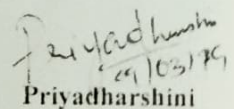 Priyadharshini
29/03/79
Priyadharshini